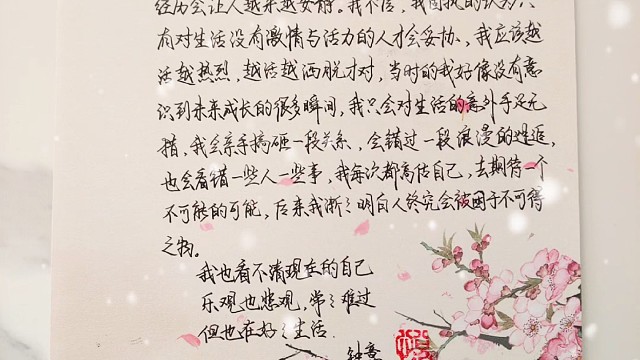 经历会让人越来越安静。我不信，我固执的认为只
有对生活没有激情与活力的人才会妥协，我应该越
活越热烈，越活越洒脱才对，当时的我好像没有意
识到未来成长的很多瞬间，我只会对生活的意外手足无
措，我会亲手搞砸一段关系，会错过一段浪漫的邂逅，
也会看错一些人一些事，我每次都高估自己，去期待一个
不可能的可能，后来我渐渐明白人终究会被困于不可得
之物。
我也看不清现在的自己
乐观也悲观，常常难过
但也在好好生活
钟意